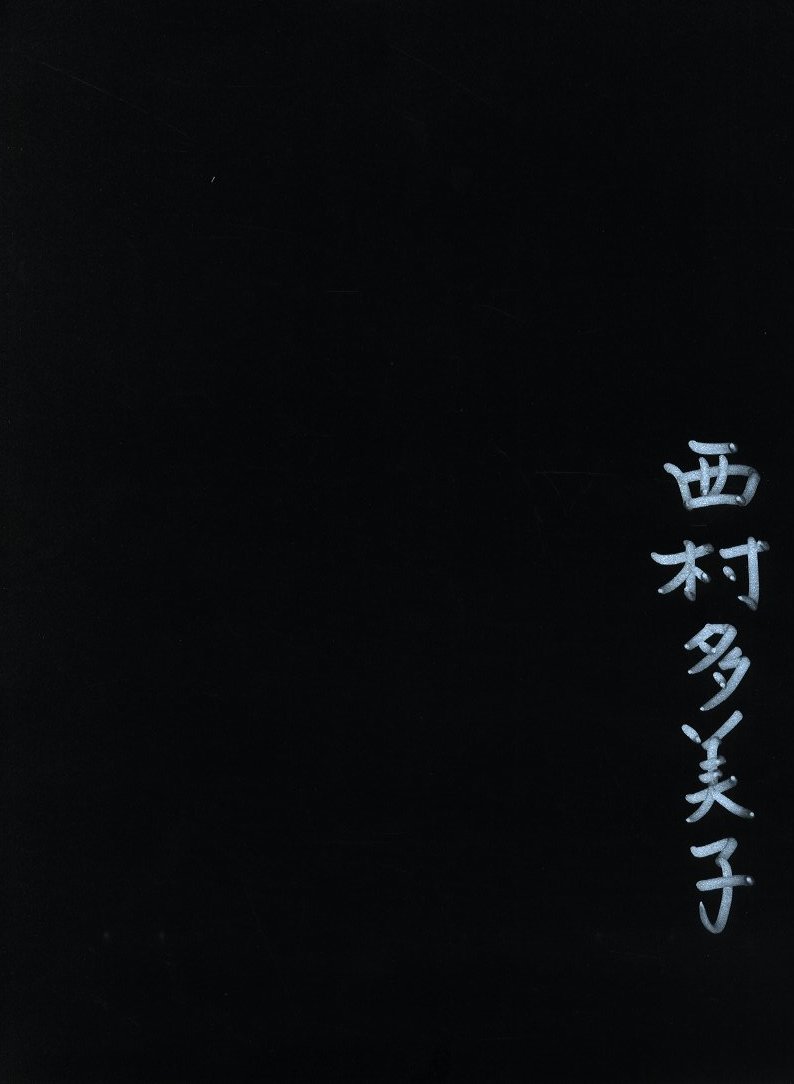 西村多美子